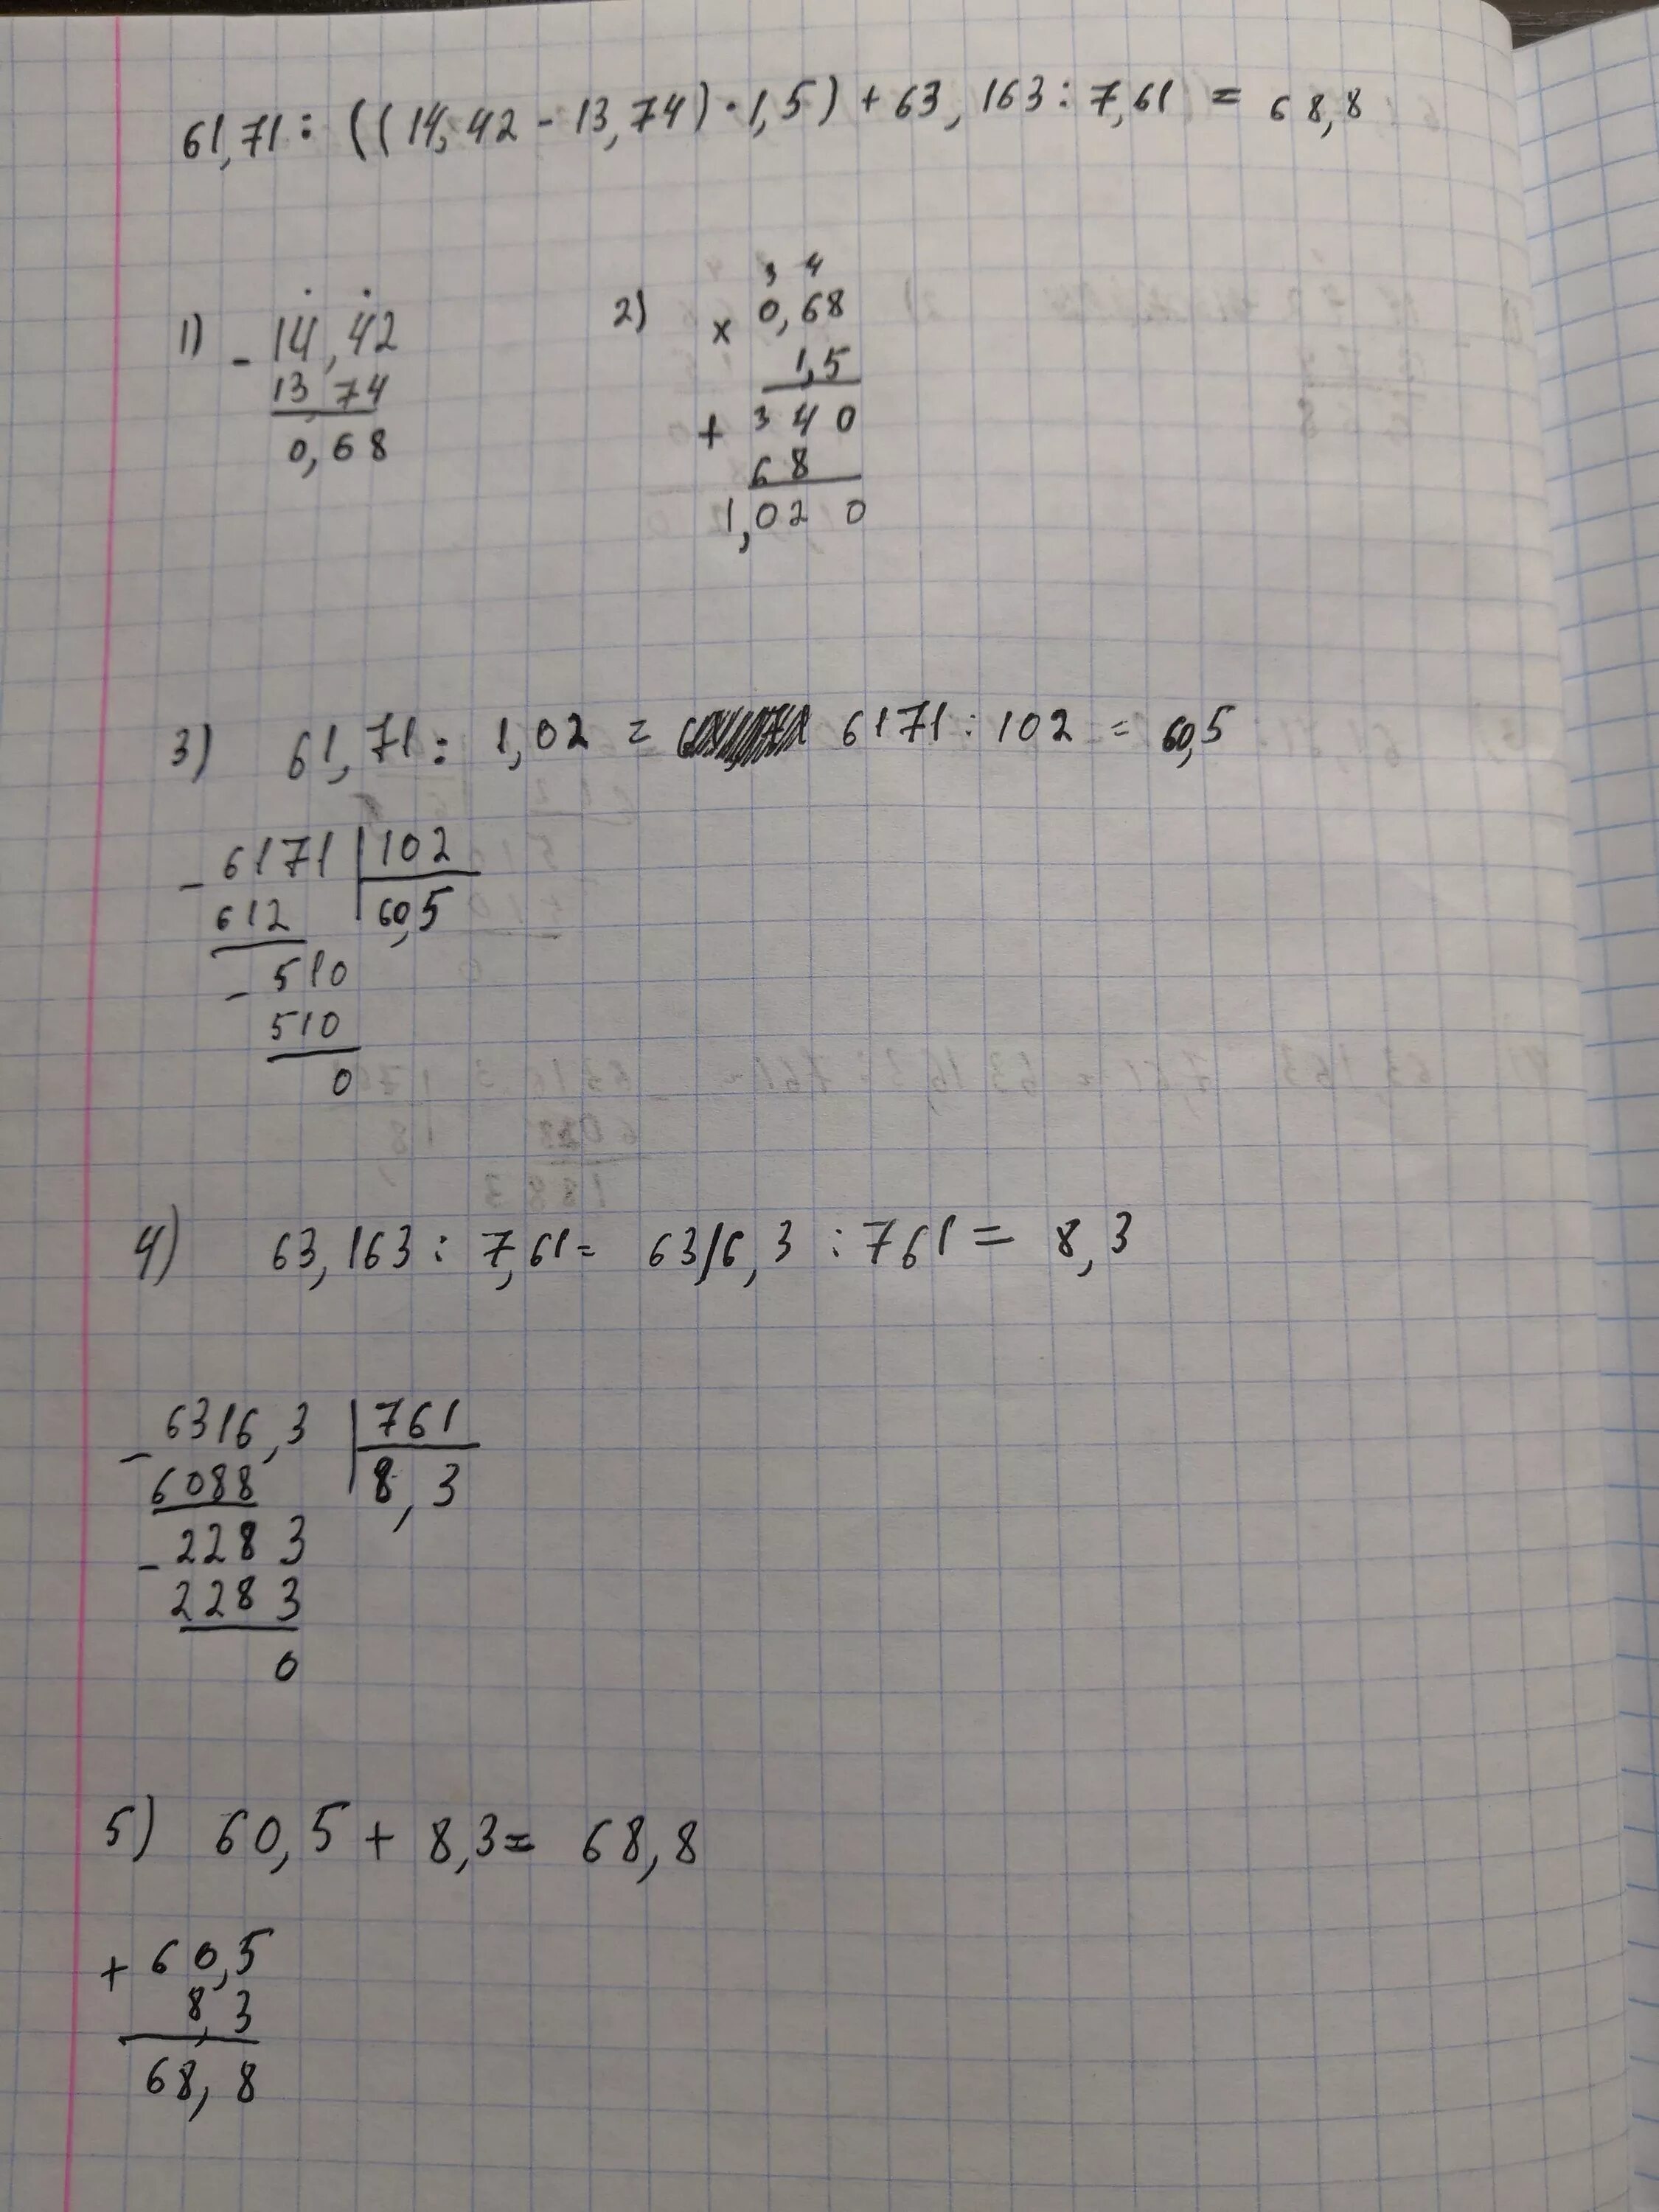 61,71 : ((14,42 - 13,74) · 1,5) + 63,163 : 7,61 = 68,8
1) - 14,42
13,74
0,68
2) 3 4
x 0,68
1,5
+ 340
68
1,020
3) 61,71 : 1,02 = 6171 : 102 = 60,5
- 6171 | 102
612 | 60,5
- 510
510
0
4) 63,163 : 7,61 = 6316,3 : 761 = 8,3
- 6316,3 | 761
6088 | 8,3
- 2283
2283
0
5) 60,5 + 8,3 = 68,8
+ 60,5
8,3
68,8